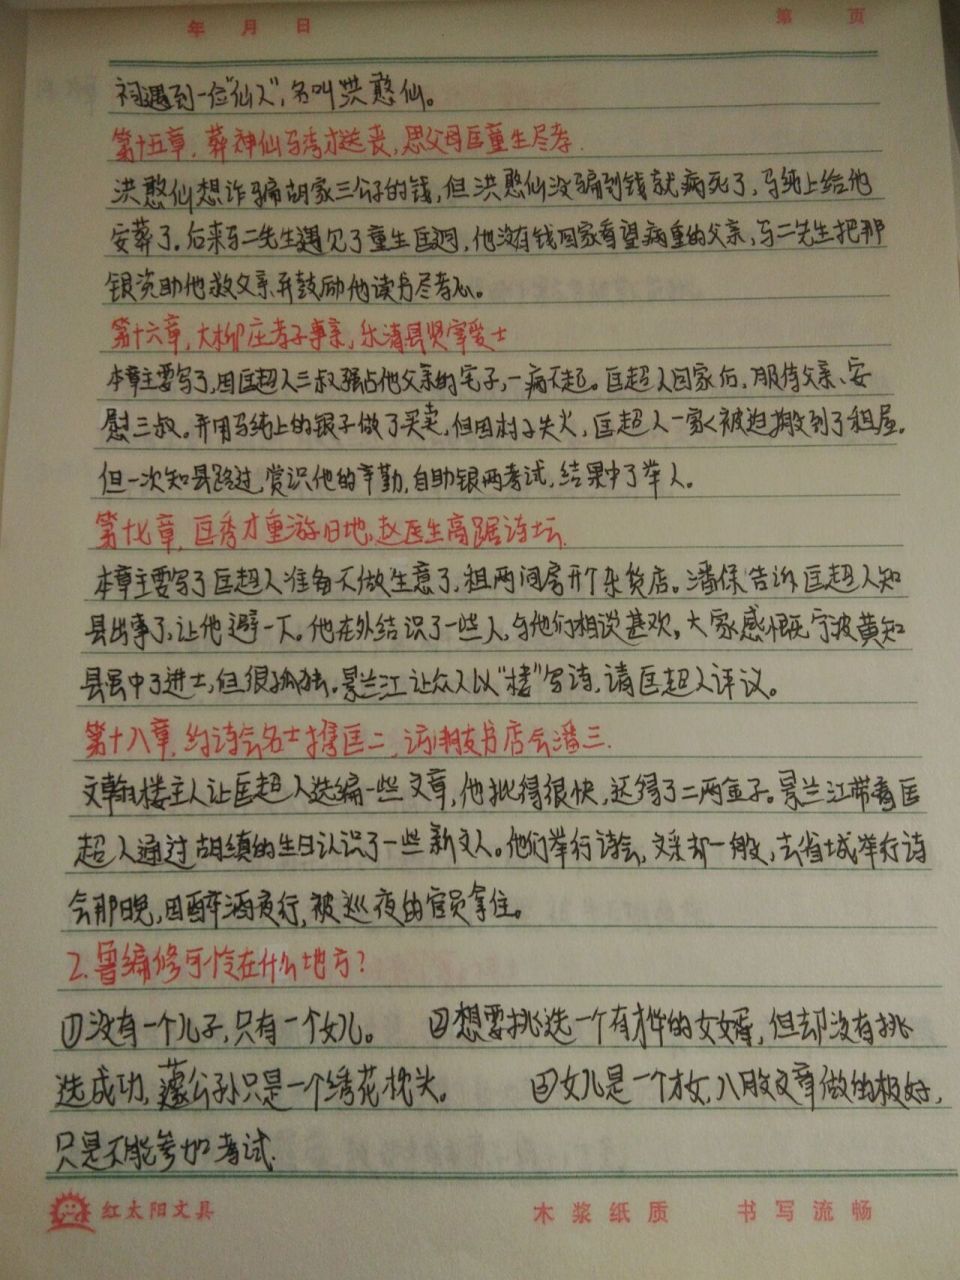 年 月 日 第 页
祠遇到一位“仙人”,名叫洪憨仙。
第十五章,葬神仙马秀才送丧,思父母匡童生尽孝.
洪憨仙想诈骗胡家三公子的钱,但洪憨仙没骗到钱就病死了,马纯上给他
安葬了。后来马二先生遇见了童生匡迥,他没有钱回家看望病重的父亲,马二先生把那
银资助他救父亲并鼓励他读书尽孝心。
第十六章,大柳庄孝子事亲,乐清县贤宰爱士
本章主要写了,因匡超人三叔强占他父亲的宅子,一病不起。匡超人回家后,服侍父亲、安
慰三叔。并用马纯上的银子做了买卖,但因村子失火,匡超人一家人被迫搬到了租屋。
但一次知县路过,赏识他的辛勤,自助银两考试,结果中了举人。
第十七章,匡秀才重游旧地,赵医生高踞诗坛.
本章主要写了匡超人准备不做生意了,租两间房开个杂货店。潘保告诉匡超人知
县出事了,让他避一下。他在外结识了一些人,与他们相谈甚欢。大家感慨宁波黄知
县虽中了进士,但很孤独。景兰江让众人以“楼”写诗,请匡超人评议。
第十八章,约诗会名士携匡二,访朋友书店会潘三.
文翰楼主人让匡超人选编一些文章,他批得很快,还得了二两金子。景兰江带着匡
超人通过胡缜的生日认识了一些新文人。他们举行诗会,文采却一般,去省城举行诗
会那晚,因醉酒夜行,被巡夜的官员拿住。
2.鲁编修可怜在什么地方?
①没有一个儿子,只有一个女儿。 ②想要挑选一个有才华的女婿,但却没有挑
选成功,蘧公孙只是一个绣花枕头。 ③女儿是一个才女,八股文章做的极好,
只是不能参加考试.
红太阳文具 木浆纸质 书写流畅